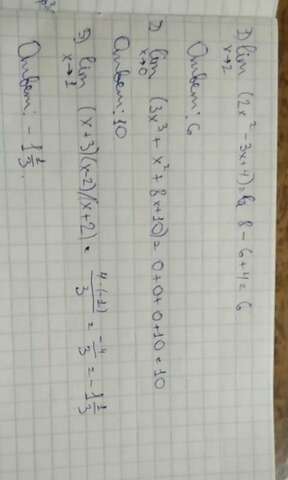 1) lim x→2 (2x² - 3x + 4) = 8 - 6 + 4 = 6
Ответ: 6
2) lim x→0 (3x³ + x² + 8x + 10) = 0 + 0 + 0 + 10 = 10
Ответ: 10
3) lim x→1 (x+3)(x-2)/(x+2) = 4·(-1)/3 = -4/3 = -1 1/3
Ответ: -1 1/3.